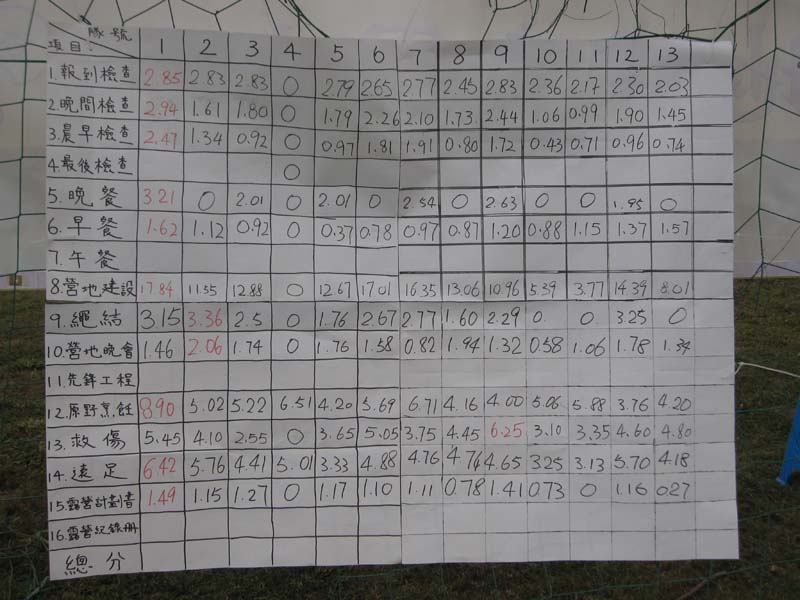 隊號
項目: 1 2 3 4 5 6 7 8 9 10 11 12 13
1.報到檢查 2.85 2.83 2.83 0 2.79 2.65 2.77 2.45 2.83 2.36 2.17 2.30 2.03
2.晚間檢查 2.94 1.61 1.80 0 1.79 2.26 2.10 1.73 2.44 1.06 0.99 1.90 1.45
3.晨早檢查 2.47 1.34 0.92 0.97 1.81 1.91 0.80 1.72 0.43 0.71 0.96 0.74
4.最後檢查 0
5.晚餐 3.21 0 2.01 0 2.01 0 2.54 0 2.63 0 0 1.95 0
6.早餐 1.62 1.12 0.92 0 0.37 0.78 0.97 0.87 1.20 0.88 1.15 1.37 1.57
7.午餐
8.營地建設 17.84 11.55 12.88 0 12.67 17.01 16.35 13.06 10.96 5.39 3.77 14.39 8.01
9.繩結 3.15 3.36 2.5 0 1.76 2.67 2.77 1.60 2.29 0. 0 3.25 0
10.營地晚會 1.46 2.06 1.74 0 1.76 1.58 0.82 1.94 1.32 0.58 1.06 1.78 1.34
11.先鋒工程
12.原野烹飪 8.90 5.02 5.22 6.51 4.20 5.69 6.71 4.16 4.00 5.06 5.88 3.76 4.20
13.救傷 5.45 4.10 2.55 0 3.65 5.05 3.75 4.45 6.25 3.10 3.35 4.60 4.80
14.遠足 6.42 5.76 4.41 5.01 3.33 4.88 4.76 4.76 4.65 3.25 3.13 5.70 4.18
15.露營計劃書 1.49 1.15 1.27 0 1.17 1.10 1.11 0.78 1.41 0.73 0 1.16 0.27
16.露營紀錄冊
總分